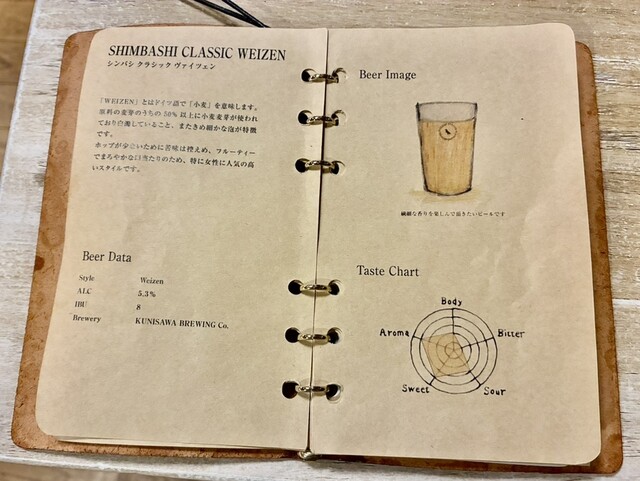 SHIMBASHI CLASSIC WEIZEN
シンバシ クラシック ヴァイツェン
「WEIZEN」とはドイツ語で「小麦」を意味します。
原料の麦芽のうちの50%以上に小麦麦芽が使われ
ており白濁していること、またきめ細かな泡が特徴
です。
ホップが少ないために苦味は控えめ、フルーティー
でまろやかな口当たりのため、特に女性に人気の高
いスタイルです。
Beer Data
Style Weizen
ALC 5.3%
IBU 8
Brewery KUNISAWA BREWING Co.
Beer Image
繊細な香りを楽しんで頂きたいビールです
Taste Chart
Body
Aroma
Bitter
Sweet
Sour